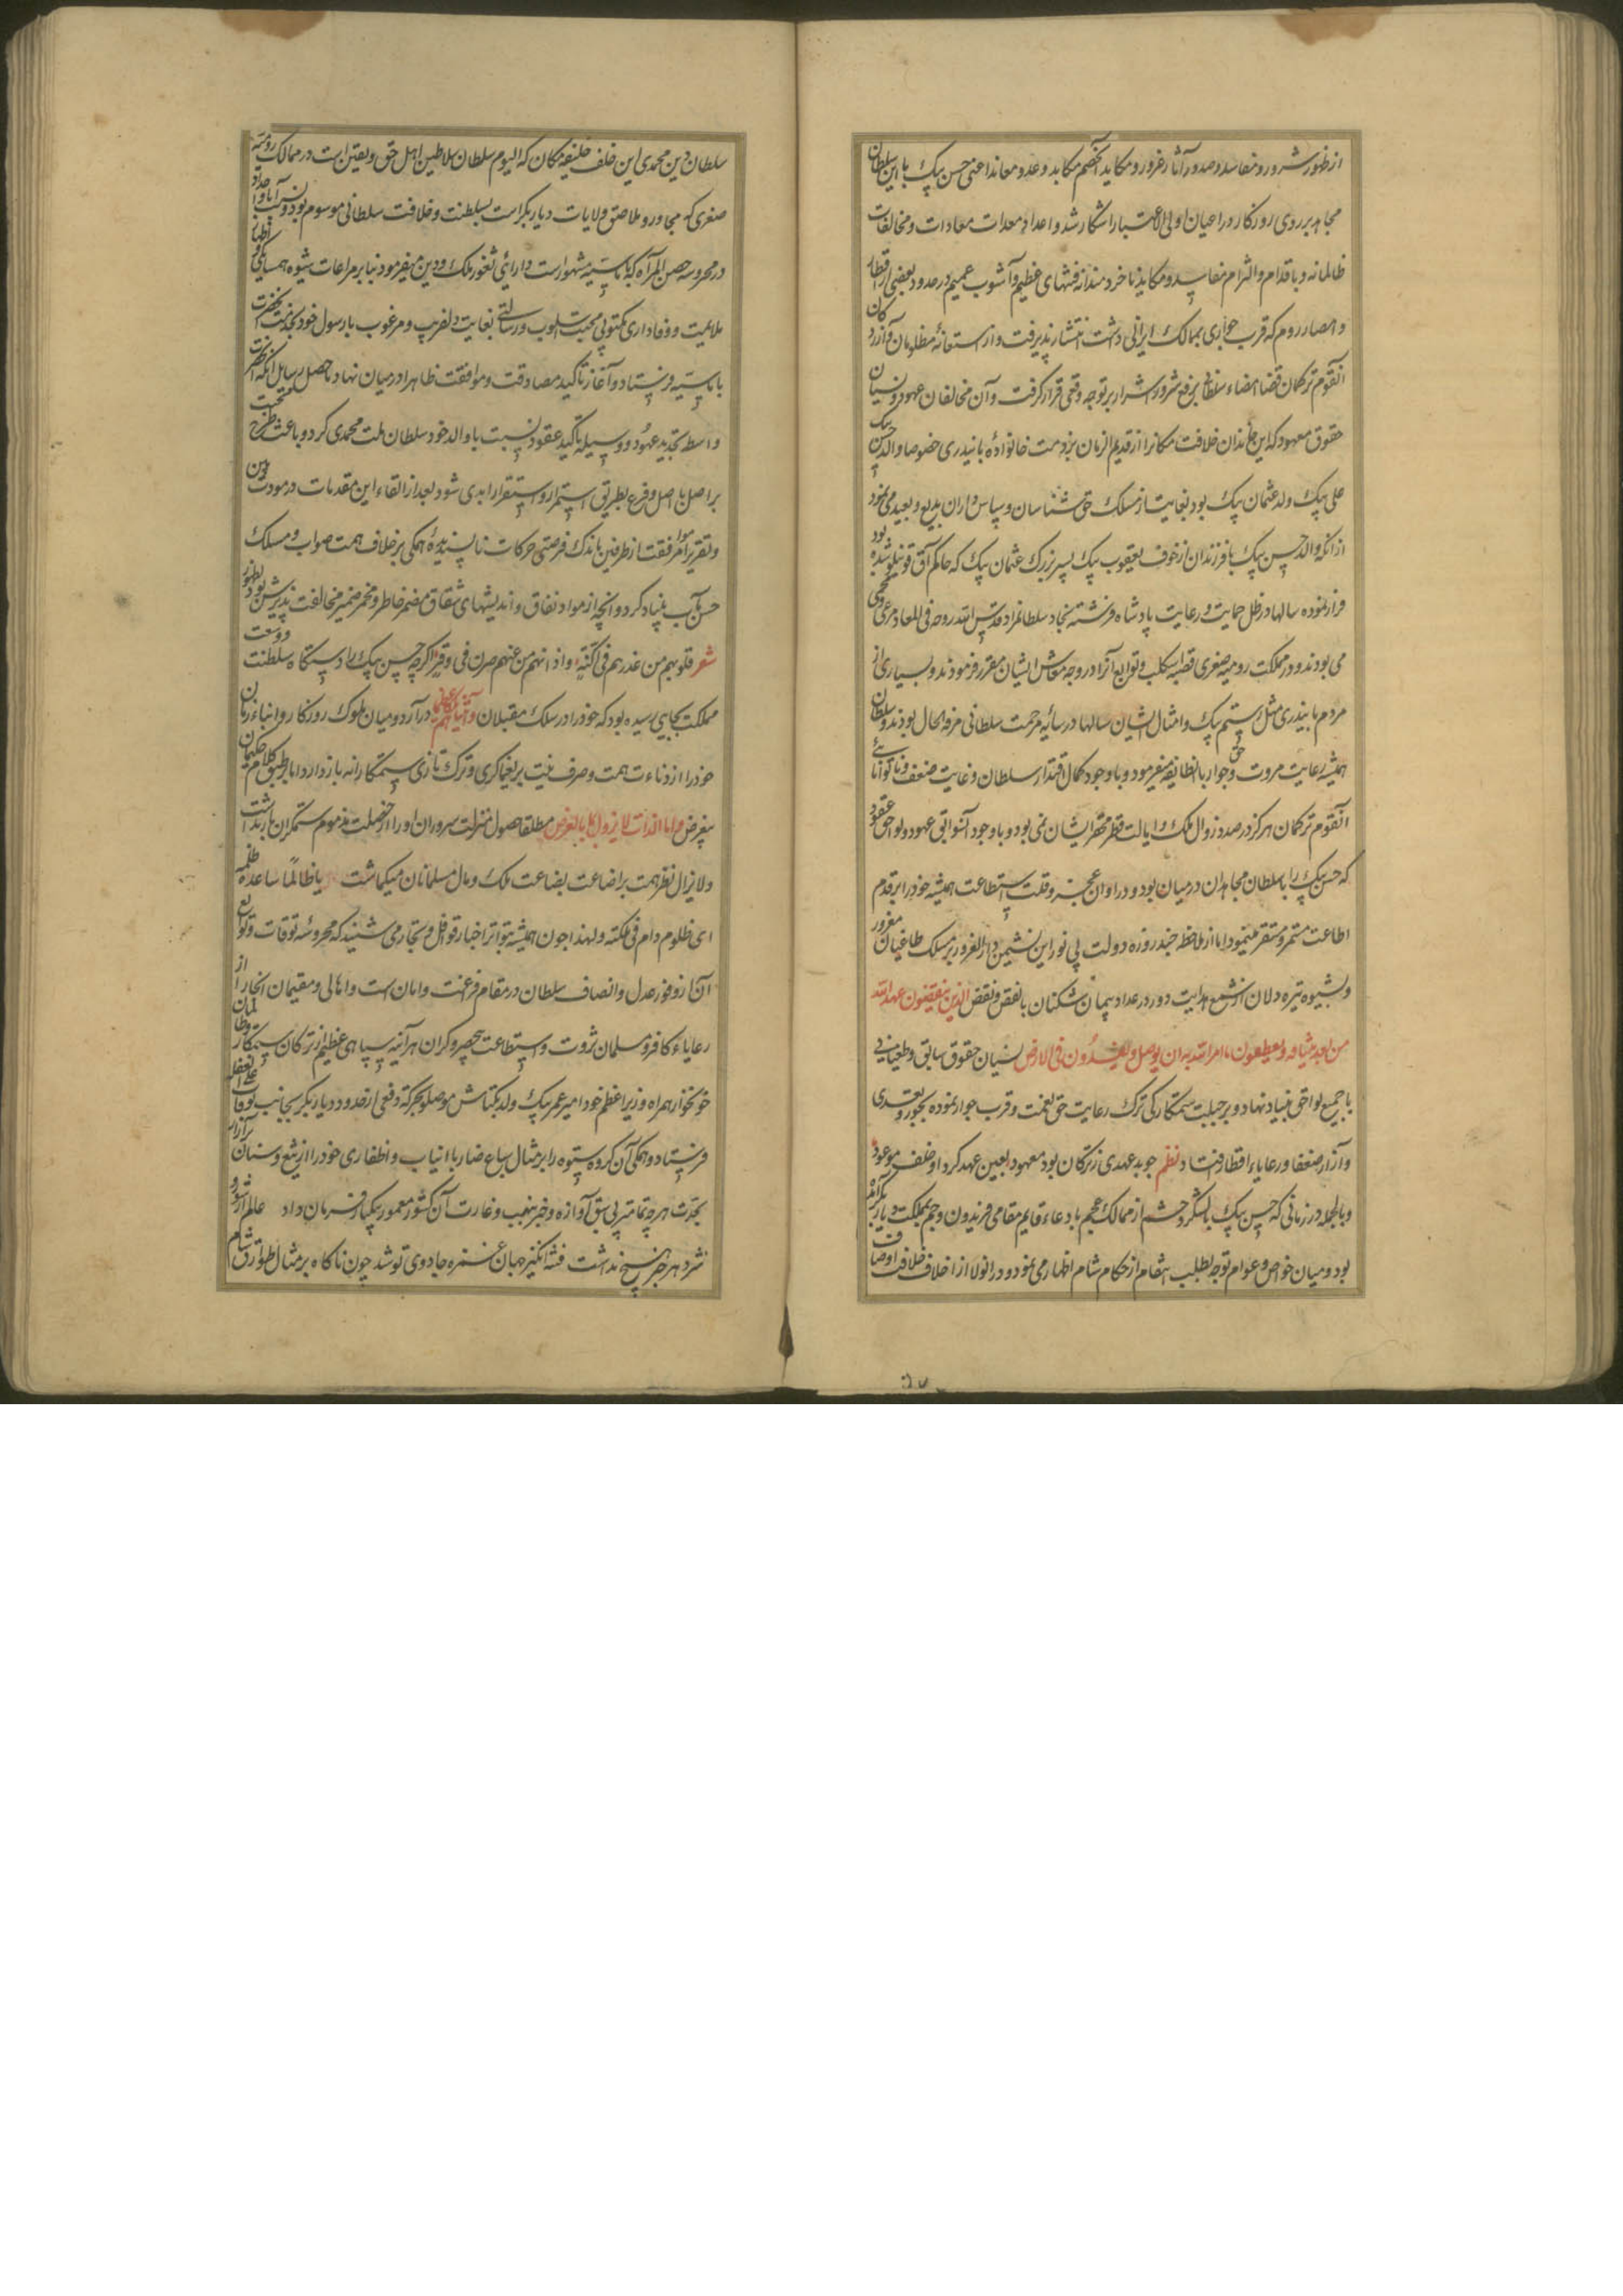 از ظهور شرور و مفاسد و صدور آثار غرور و مکاید آنخصم مکابد و عدو معاند اعنی حسن بیک با این سلطان
مجاهد بر روی روزکار و را عیان اولی الاعتبار اشکار شد و اعداد معدات معادات و مخالفات
ظالمانه و باقدام و التزام مفاسد و مکاید نا خردمندانه فتنهای عظیم و آشوب عمیم در حدود بعضی از اقطار
و امصار روم که قرب جواری بممالک ایرانی داشت انتشار پذیرفت و از استغاثهٔ مظلومان و آزردکان
انقوم ترکمان قضا امضاء سلطانی برفع شرور اشرار بر توجه وقعی قرار کرفت و آن مخالفان عهود و نسیان
حقوق معهود که این خاندان خلافت مکانرا از قدیم الزمان بر ذمت خانوادهٔ بایندری خصوصا والد حسن بیک
علی بیک ولد عثمان بیک بود بغایت از مسلک حق شناسان و سپاس داران بدیع و بعید می نمود
از انکه والد حسن بیک با فرزندان از خوف یعقوب بیک پسر بزرک عثمان بیک که حاکم آق قوینلو شده بود
فرار نموده سالها در ظل حمایت و رعایت پادشاه فرشته نجاد سلطانمراد قدس الله روحه فی المعاد مرعی و محمی
می بودند و در مملکت رومیه صغری قصبه اسکلیب و توابع آنرا در وجه معاش ایشان مقرر فرمودند و بسیاری از
مردم بایندری مثل رستم بیک و امثال ایشان سالها در سایهٔ مرحمت سلطانی مرفه الحال بودند و سلطان
همیشه رعایت مروت و حق جوار با انطایفه میفرمود و با وجود کمال اقتدار سلطان و غایت ضعف و ناتوانائی
انقوم ترکمان هرکز در صدد زوال ملک و ایالت قطر محقر ایشان نمی بود و با وجود آنسوابق عهود و لواحق عقود
که حسن بیک را با سلطان مجاهدان در میان بود و در اوان عجز و قلت استطاعت همیشه خود را بر قدم
اطاعت مستمر و مستقر مینمود اما از ملاحظه چند روزه دولت بی نور این نشیمن دار الغرور بر مسلک طاغیان مغرور
و بشیوه تیره دلان از شمع هدایت دور در عداد پیمان شکنان بالنقص و نقض الذین ینقضون عهد الله
من بعد میثاقه و یقطعون ما امر الله به ان یوصل و یفسدون فی الارض نسیان حقوق سابق و طغیانی
با جمیع لواحق بنیاد نهاد و بر جبلت ستمکارکی ترک رعایت حق نعمت و قرب جوار نموده بجور و تعدی
و آزار ضعفا و رعایاء اقطار افتاد نظم جو بد عهدی ز ترکان بود معهود بعین عهد کرد او خلف موعود
و بالجمله در زمانی که حسن بیک با لشکر و حشم از ممالک عجم با دعاء قایم مقامی فریدون و جم بمملکت دیار بکر آمده
بود و میان خواص و عوام توجه بطلب انتقام از حکام شام اظهار می نمود و در انولا از اخلاف خلافت اوصاف
سلطان دین محمدی این خلف خلیفه مکان که الیوم سلطان سلاطین اهل حق و یقین است در ممالک رومیه
صغری که مجاور و ملاصق ولایات دیار بکر است بسلطنت و خلافت سلطانی موسوم بود و نسب آبا و اجداد
در محروسه حصن المرآه که باماسیه مشهور است دارایی ثغور ملک و دین میفرمود بنا بر مراعات شیوه همسایکی و اظهار
ملایمت و وفاداری مکتوبی محبت اسلوب و رسالتی بغایت دلفریب و مرغوب با رسول خود بخدمت آنحضرت
باماسیه فرستاد و آغاز تاکید مصادقت و موافقت ظاهرا در میان نهاد ما حصل رسایل آنکه آنحضرت
واسطه تجدید عهود و وسیله تاکید عقود نسبت با والد خود سلطان ملت محمدی کردد و باعث طرح محبت
بر اصل با اصل و فرع بطریق استمرار و استقرار ابدی شود بعد از القاء این مقدمات در مودت
و تقریر امر موافقت از طرفین باندک فرصتی حرکات ناپسندیدهٔ همکی بر خلاف همت صواب و مسلک
حسن مآب بنیاد کرد و انچه از مواد نفاق و اندیشهای شقاق مضمر خاطر و مخمر ضمیر مخالفت پذیرش بود
شعر قلوبهم من غدرهم فی اکنة و اذانهم من غیهم صرن فی وقر اکرچه حسن بیک را دستکاه سلطنت و وسعت
مملکت بجایی رسیده بود که خود را در سلک مقبلان و آتیناهم ملکا عظیما در آرد و میان ملوک روزکار و ابناء زمان
خود را از دناءت همت و صرف نیت بر یغماکری و ترک تازی ستمکارانه باز دارد اما بر طبق کلام حکیمان
بیغرض و ما بالذات لا یزول بالعرض مطلقا حصول منزلت سروران او را از خصلت مذموم ستمکران باز نداشت
و لا یزال نظر همت بر اضاعت بضاعت ملک و مال مسلمانان میکماشت یا ظالما ساعده ظلمه
ای ظلوم دام فی ملکته و لهذا چون همیشه بتواتر اخبار قوافل و تجار می شنید که محروسهٔ توقات و توابع
آن از وفور عدل و انصاف سلطان در مقام فرغت و امان است و اهالی و مقیمان انجا را از
رعایاء کافر و مسلمان ثروت و استطاعت بیحصر و کران هرآینه سپاهی عظیم از ترکان ستمکار و ظالمان
خونخوار همراه وزیر اعظم خود امیر عمر بیک ولد بکتاش موصلو بحرکة وقعی از حدود دیار بکر بجانب توقات علی الغفله
فرستاد و همکی آن کروه ستوه را بر مثال سباع ضار با انیاب و اظفاری خود را از تیغ و سنان
بحدت هر چه تمامتر بی سبق آوازه و خبر بنهب و غارت آن کشور معمور یکبار فرمان داد عالم از شور و
شر دهر خبر هیچ نداشت فتنه انکیز جهان غمزه جادوی تو شد چون ناکاه بر مثال طوارق شام